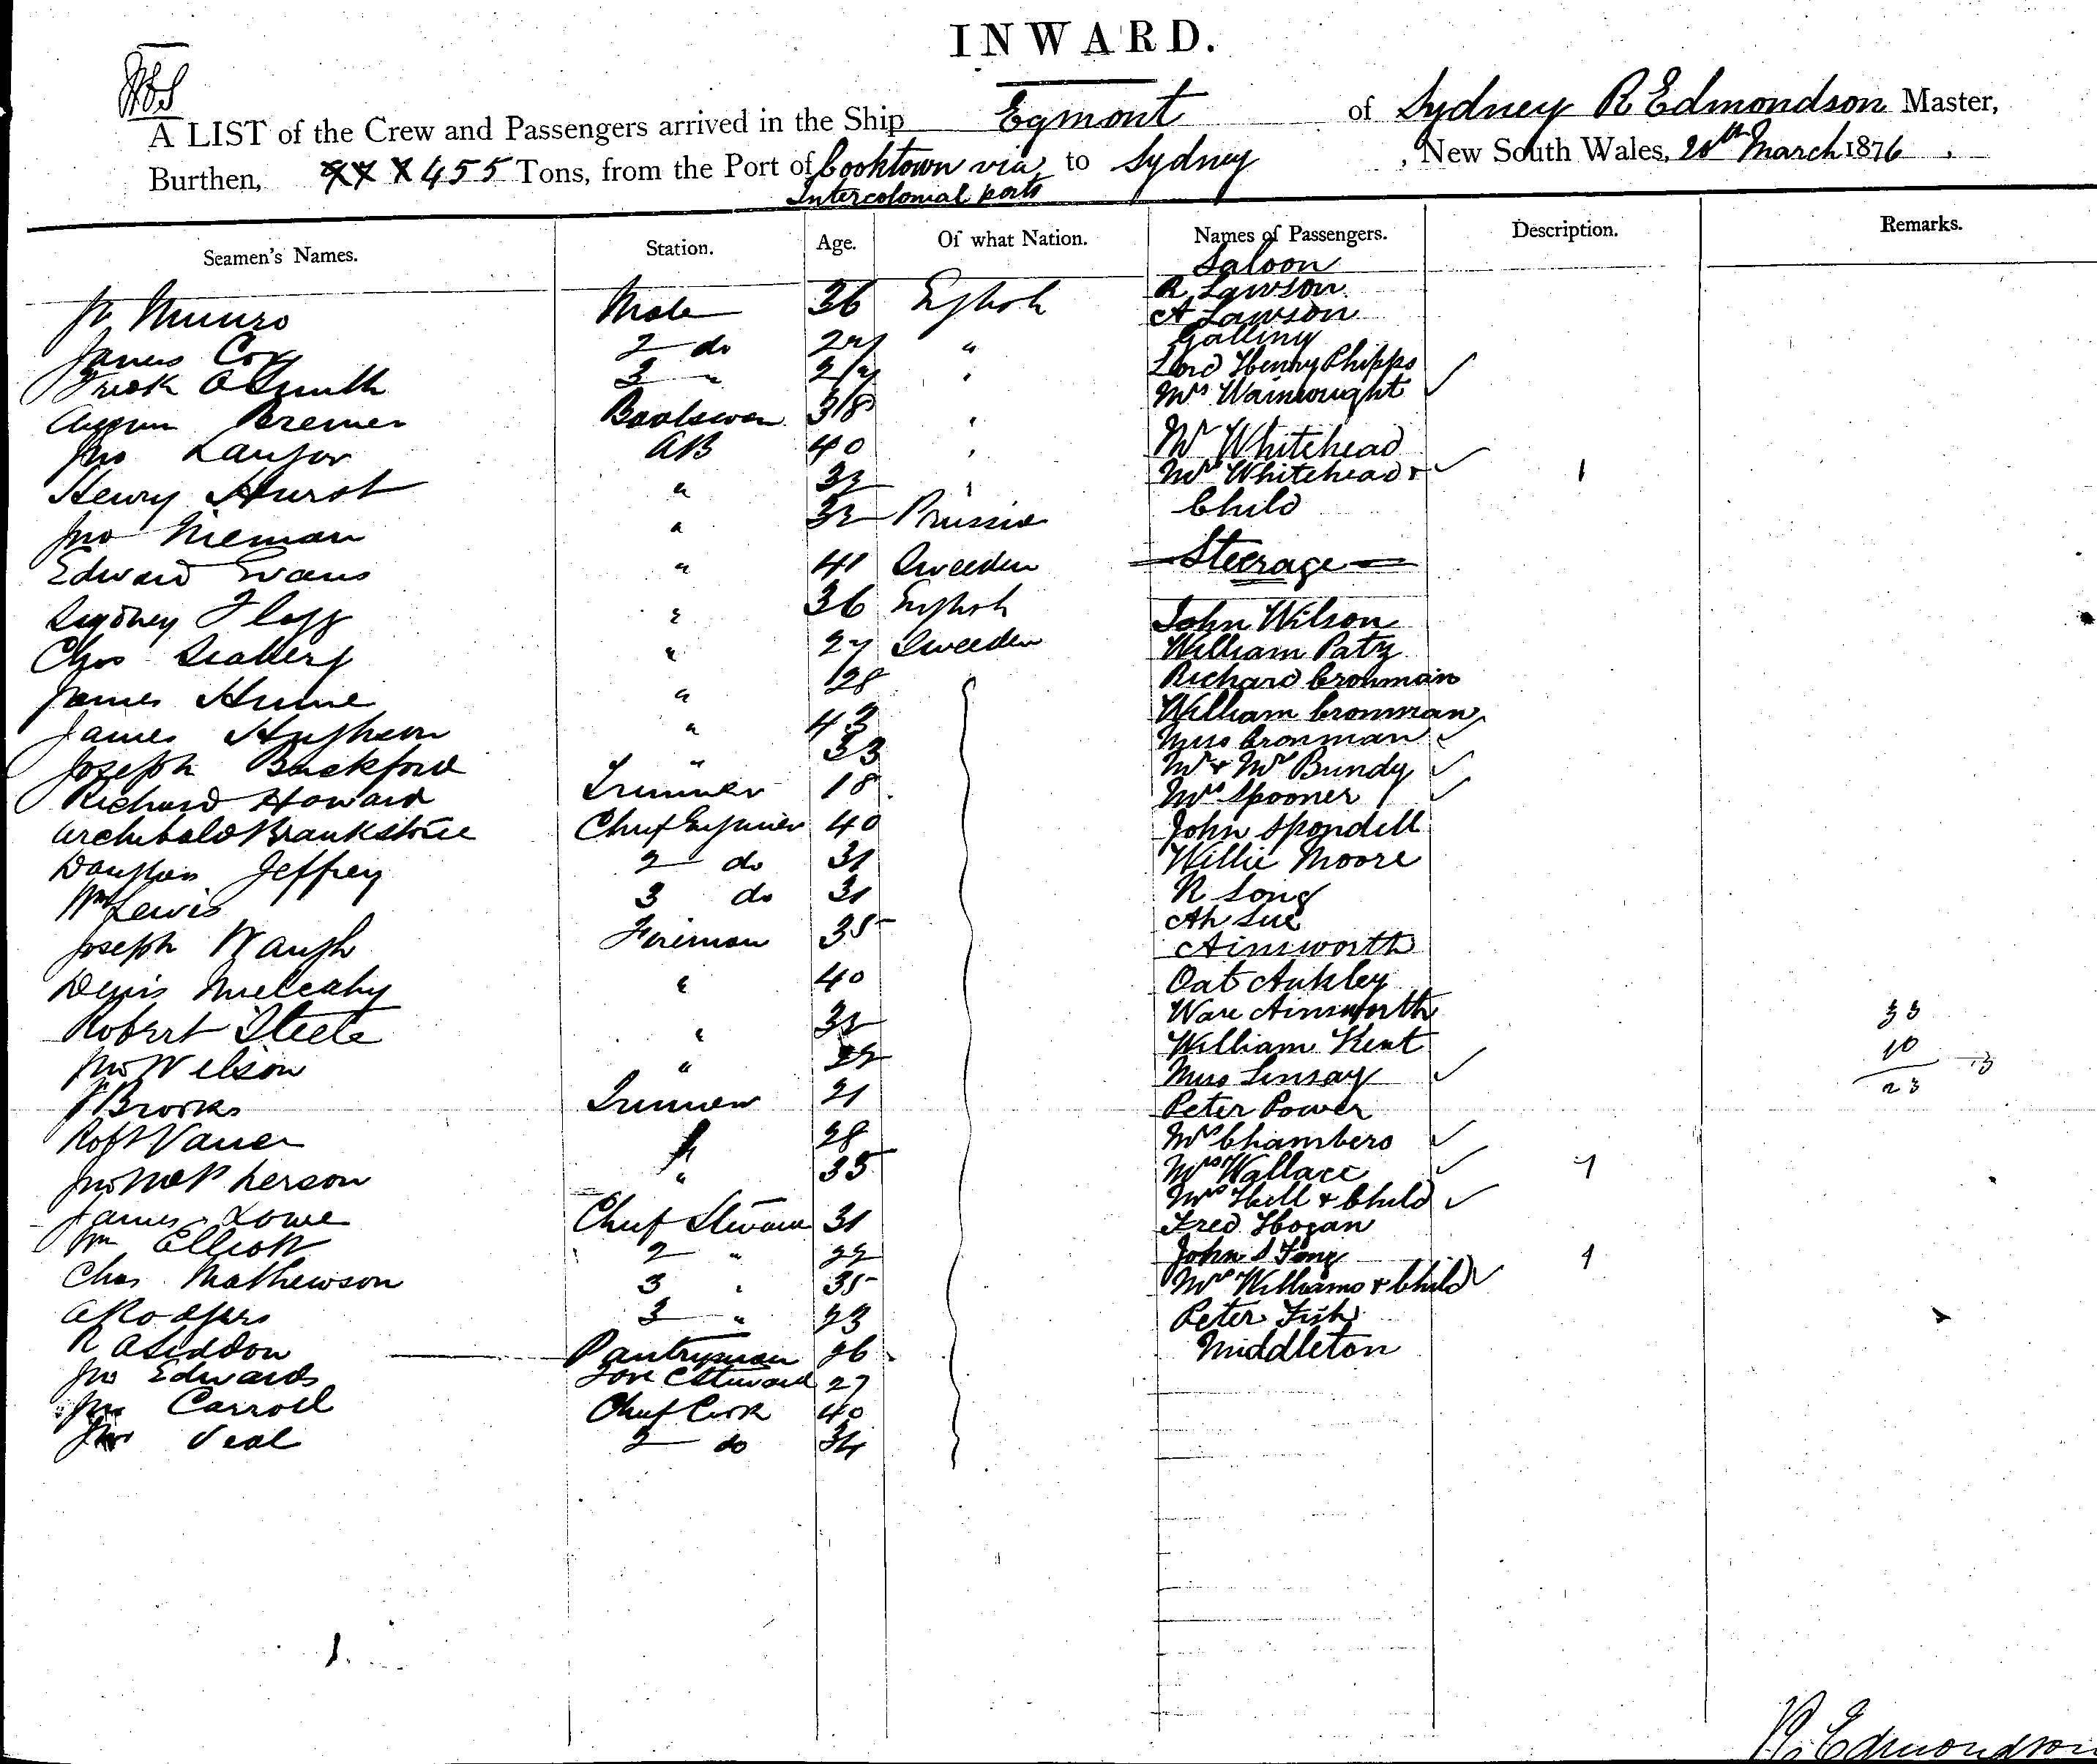 INWARD.
A LIST of the Crew and Passengers arrived in the Ship Egmont of Sydney R Edmondson Master,
Burthen, 455 Tons, from the Port of Cooktown via to Sydney, New South Wales, 20th March 1876
Intercolonial ports
Seamen's Names. Station. Age. Of what Nation. Names of Passengers. Description. Remarks.
Saloon
R Lawson
Munro Mate 36 English A Lawson
James Cox 2 do 27 " Galling
Fredk A Smith 3 " Lord Henry Phipps
Bremer Boatswain 38 " Mrs Wainwright
Jno AB 40 " Mr Whitehead
Henry Hurst " 32 " Mrs Whitehead + 1
Jno Nieman " 32 Prussia Child
Edward Evans " 41 Sweeden Steerage
Sydney Flagg " 36 English John Wilson
Chas Seaberg " 27 Sweeden William Patz
James Hume " 28 Richard Cronman
James " 43 William Cronman
Joseph Backford " 33 Miss Cronman
Richard Howard Trimmer 18 Mr + Mrs Bundy
Archibald Brankstone Chief Engineer 40 Mrs Spooner
Jeffrey 2 do 31 John Spondell
Wm Lewis 3 do 31 Willie Moore
Joseph Waugh Fireman 35 R Long
Denis Mulcahy " 40 Ah Sue
Robert Steele " 32 Ainsworth
Jno Nelson " 22 Oat Aukley
Brooks Trimmer 21 Ware Ainsworth 33
Robt 28 William Kent 10
Jno McPherson " 35 Miss Linsay 23
James Lowe Chief Steward 31 Peter Power
Wm Elliott 2 " 22 Mrs Chambers
Chas Mathewson 3 " 35 Mrs Wallace 1
A Rodgers 3 " 23 Mrs Hill + Child
R A Seddon Pantryman 26 Fred Hogan
Jno Edwards Fore C Steward 27 John S Fong 1
Jno Carroll Chief Cook 40 Mrs Williams + Child
Jno Veal 2 do 34 Peter Fish
Middleton
R. Edmondson